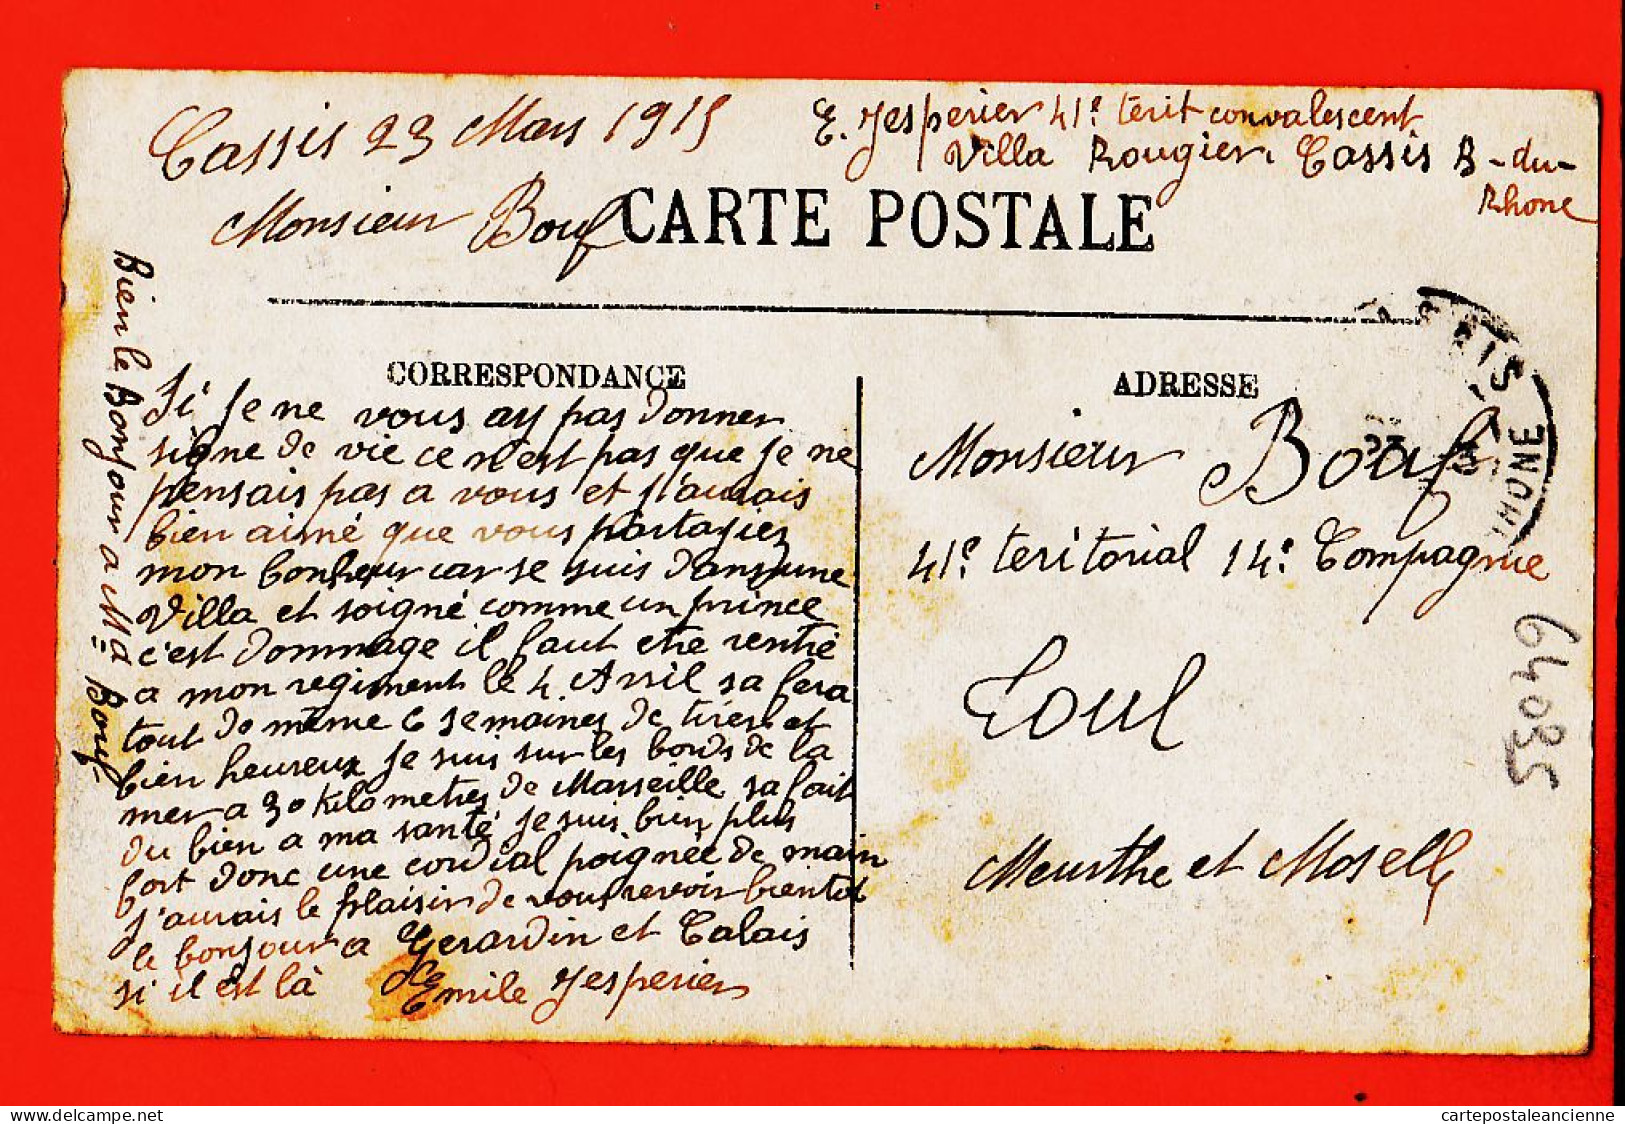 Cassis 23 Mars 1915
E. Jesperier 41e térit convalescent
Villa Rougier. Cassis B-du-
Rhone
Monsieur Bouf
CARTE POSTALE
CORRESPONDANCE
Si je ne vous ay pas donner
signe de vie ce n'est pas que je ne
pensais pas a vous et j'aurais
bien aimé que vous partagiez
mon bonheur car je suis dans une
villa et soigné comme un prince
c'est dommage il faut etre rentré
a mon régiment le 4 Avril sa fera
tout de même 6 semaines de tirer et
bien heureux je suis sur les bords de la
mer a 30 kilometres de Marseille sa fait
du bien a ma santé je suis bien plus
fort donc une cordial poignée de main
j'aurais le plaisir de vous revoir bientot
le bonjour a Gerardin et Calais
si il est là
Emile Jesperier
Bien le Bonjour a Ma Bouf
ADRESSE
Monsieur Bouf
41e teritorial 14e Compagnie
Toul
Meurthe et Moselle
SSIS
RHONE
64035
cartepostaleancienne